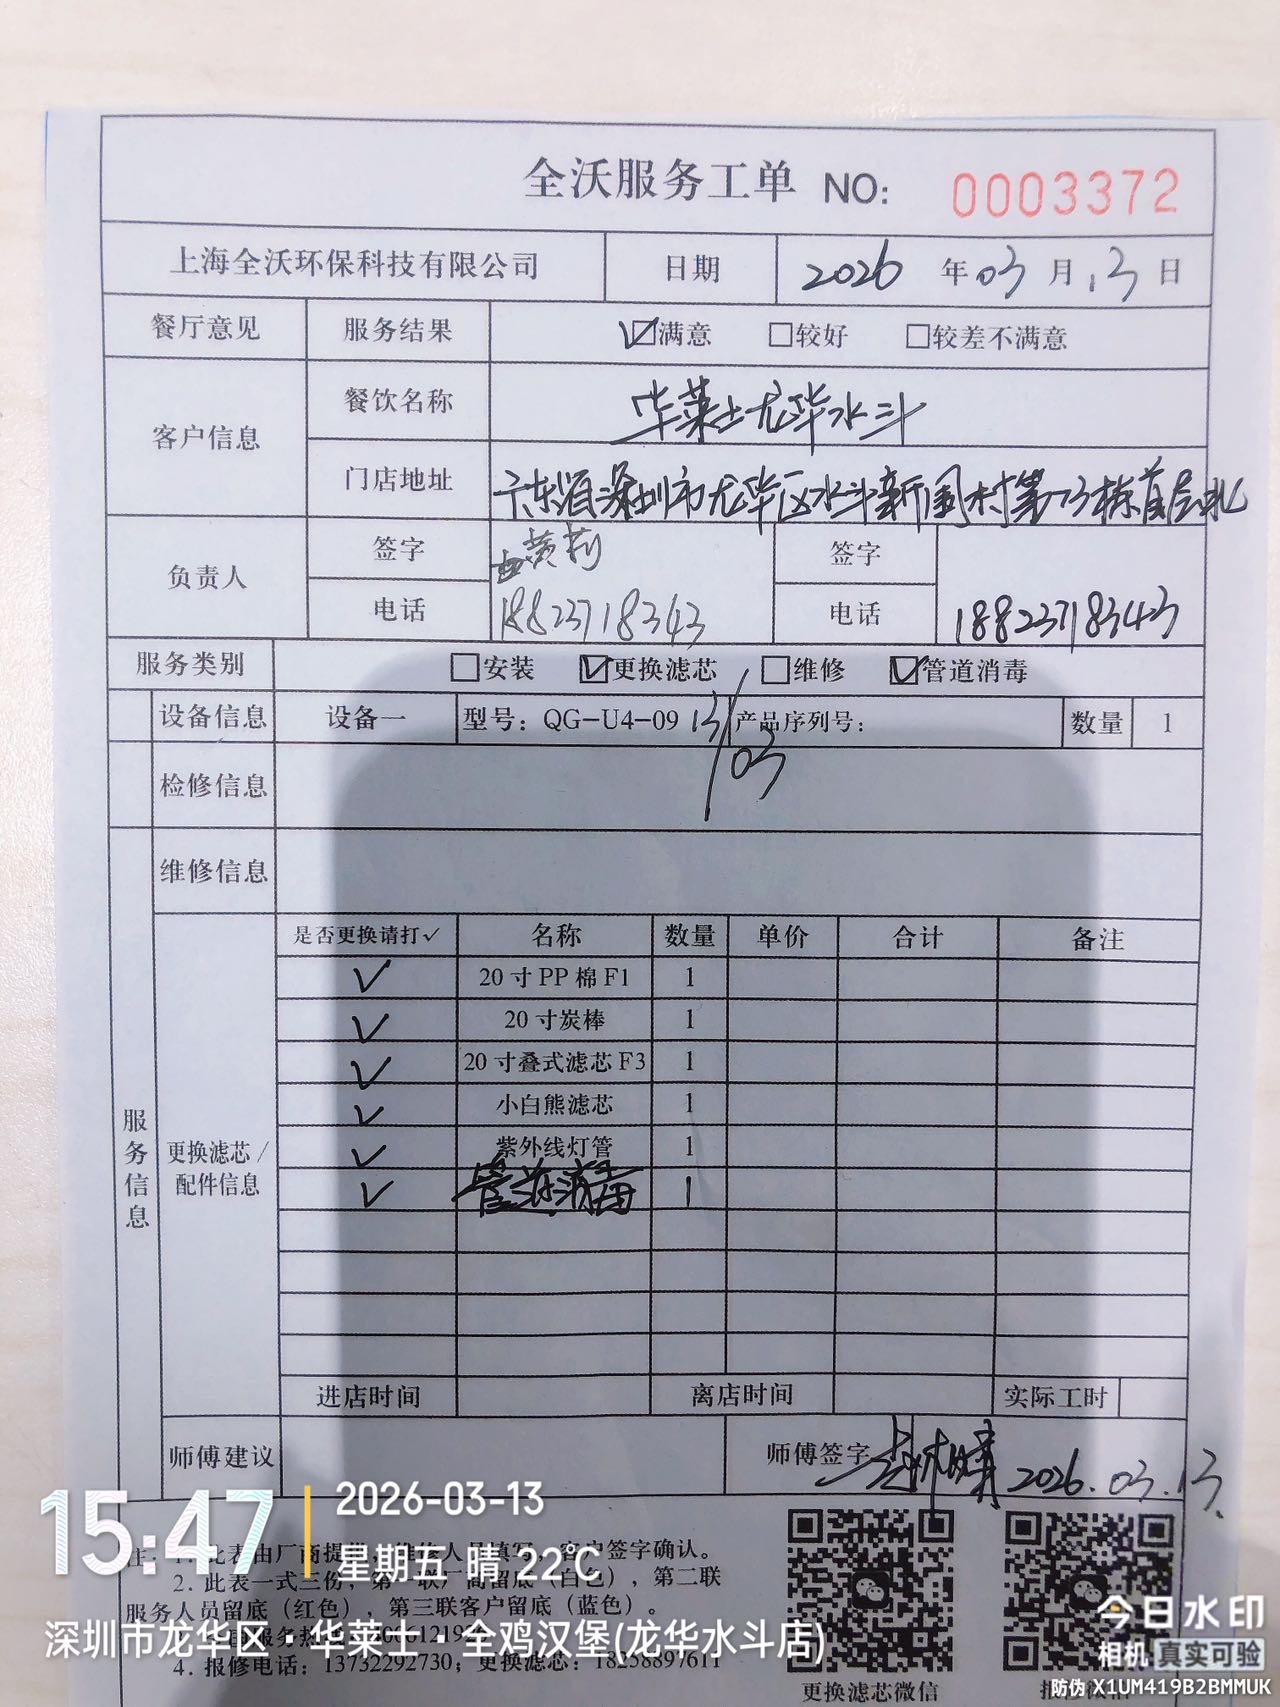 全沃服务工单 NO: 0003372
上海全沃环保科技有限公司 日期 2026 年 03 月 13 日
餐厅意见 服务结果 ☑满意 □较好 □较差不满意
客户信息 餐饮名称 华莱士龙华水斗
门店地址 广东省深圳市龙华区水斗新围村第73栋首层北
负责人 签字 黄莉 签字
电话 18823718343 电话 18823718343
服务类别 □安装 ☑更换滤芯 □维修 ☑管道消毒
设备信息 设备一 型号：QG-U4-09 13/03 产品序列号： 数量 1
检修信息
维修信息
服务信息
更换滤芯/
配件信息
是否更换请打✓ 名称 数量 单价 合计 备注
✓ 20寸PP棉F1 1
✓ 20寸炭棒 1
✓ 20寸叠式滤芯F3 1
✓ 小白熊滤芯 1
✓ 紫外线灯管 1
✓ 管道消毒 1
进店时间 离店时间 实际工时
师傅建议 师傅签字 2026.03.13.
注：1. 此表由厂商提供，维修人员填写，客户签字确认。
2. 此表一式三份，第一联厂商留底（白色），第二联
服务人员留底（红色），第三联客户留底（蓝色）。
4. 报修电话：13732292730；更换滤芯：18258897611
更换滤芯微信
15:47
2026-03-13
星期五 晴 22℃
深圳市龙华区·华莱士·全鸡汉堡(龙华水斗店)
今日水印
相机 真实可验
防伪 X1UM419B2BMMUK